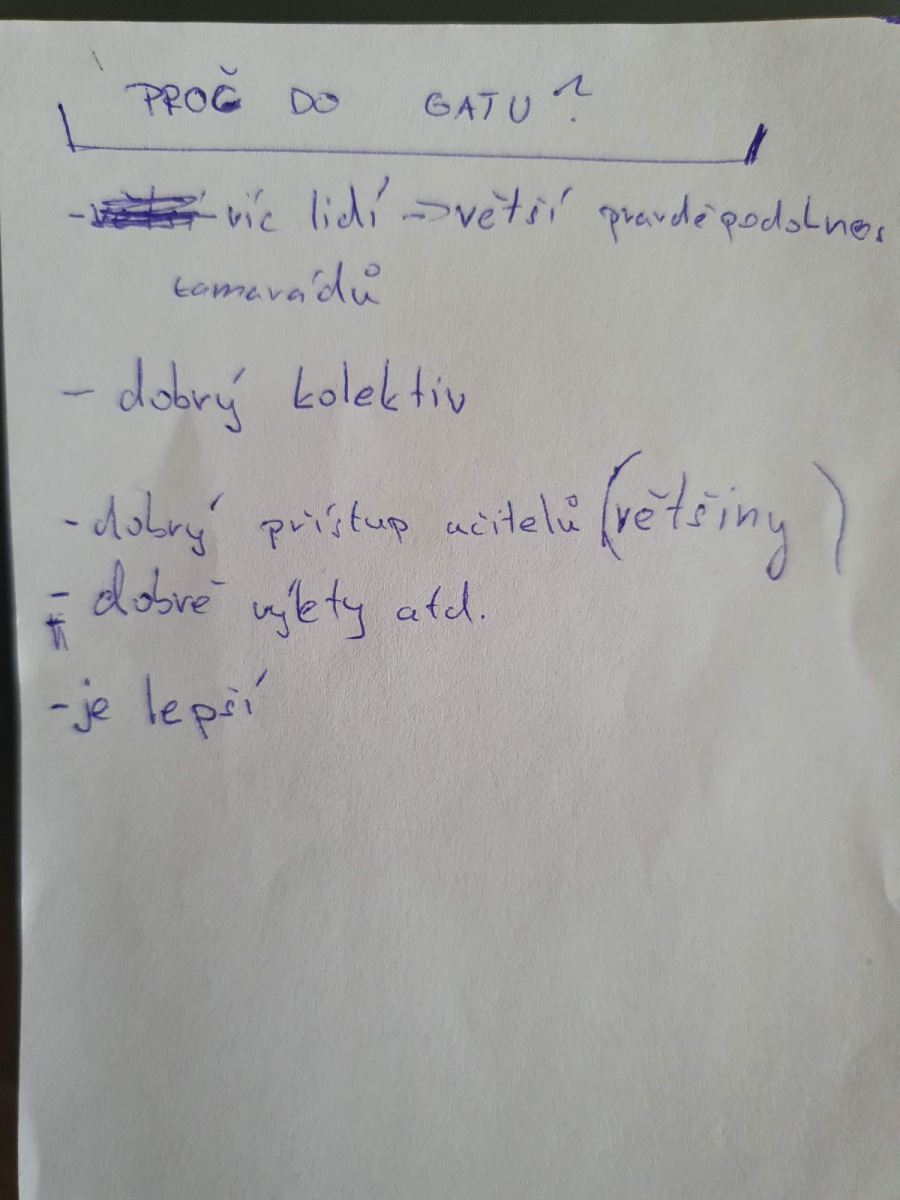 PROČ DO GATU?
- víc lidí -> větší pravděpodobnos
kamarádů
- dobrý kolektiv
- dobrý přístup učitelů (většiny)
- dobré výlety atd.
- je lepší